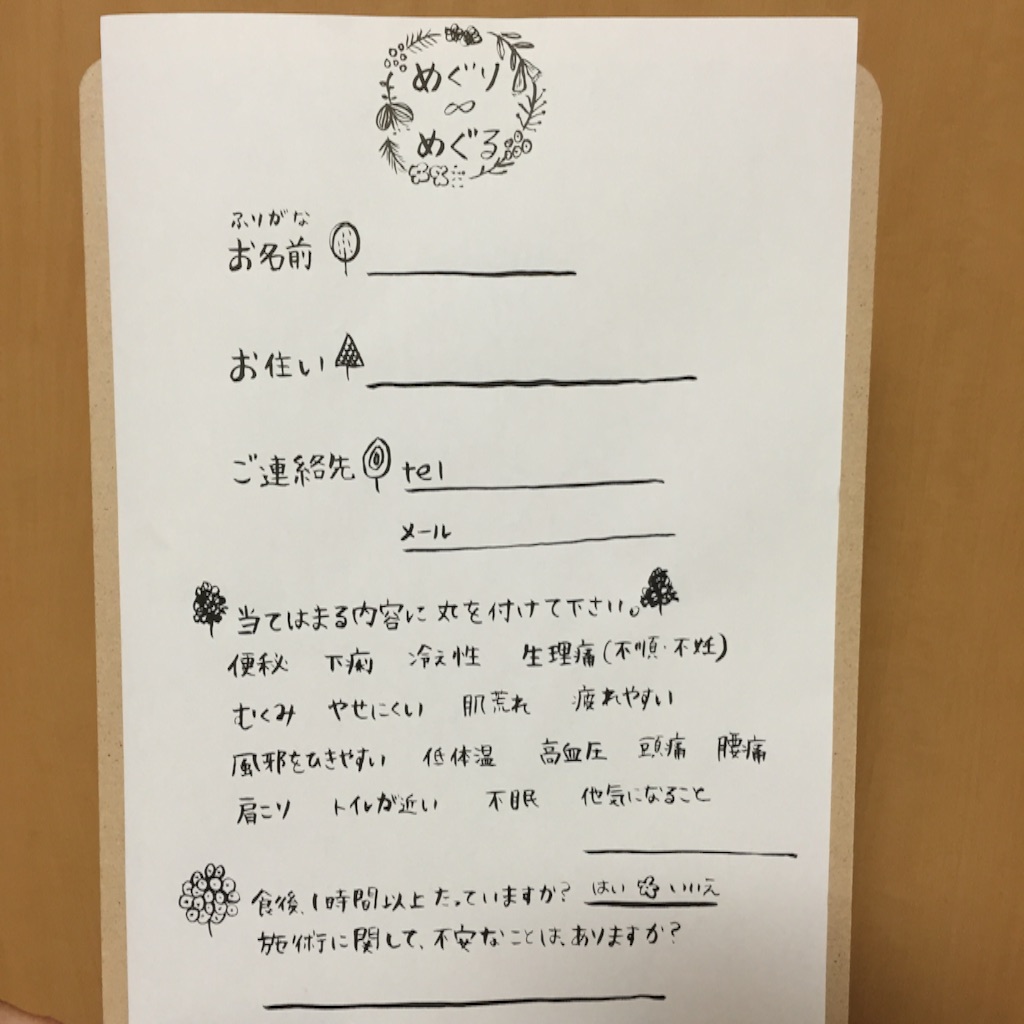 めぐり
∞
めぐる
ふりがな
お名前
お住い
ご連絡先 tel
メール
当てはまる内容に丸を付けて下さい。
便秘 下痢 冷え性 生理痛(不順・不妊)
むくみ やせにくい 肌荒れ 疲れやすい
風邪をひきやすい 低体温 高血圧 頭痛 腰痛
肩こり トイレが近い 不眠 他気になること
食後、1時間以上たっていますか? はい いいえ
施術に関して、不安なことは、ありますか?